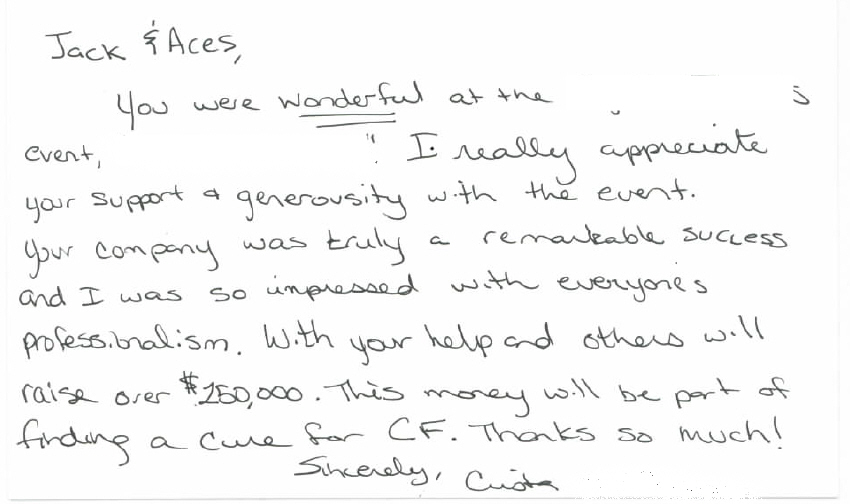 Jack & Aces,
You were wonderful at the
event, " I really appreciate
your support & generousity with the event.
Your company was truly a remarkable success
and I was so impressed with everyones
professionalism. With your help and others will
raise over $250,000. This money will be part of
finding a cure for CF. Thanks so much!
Sincerely,